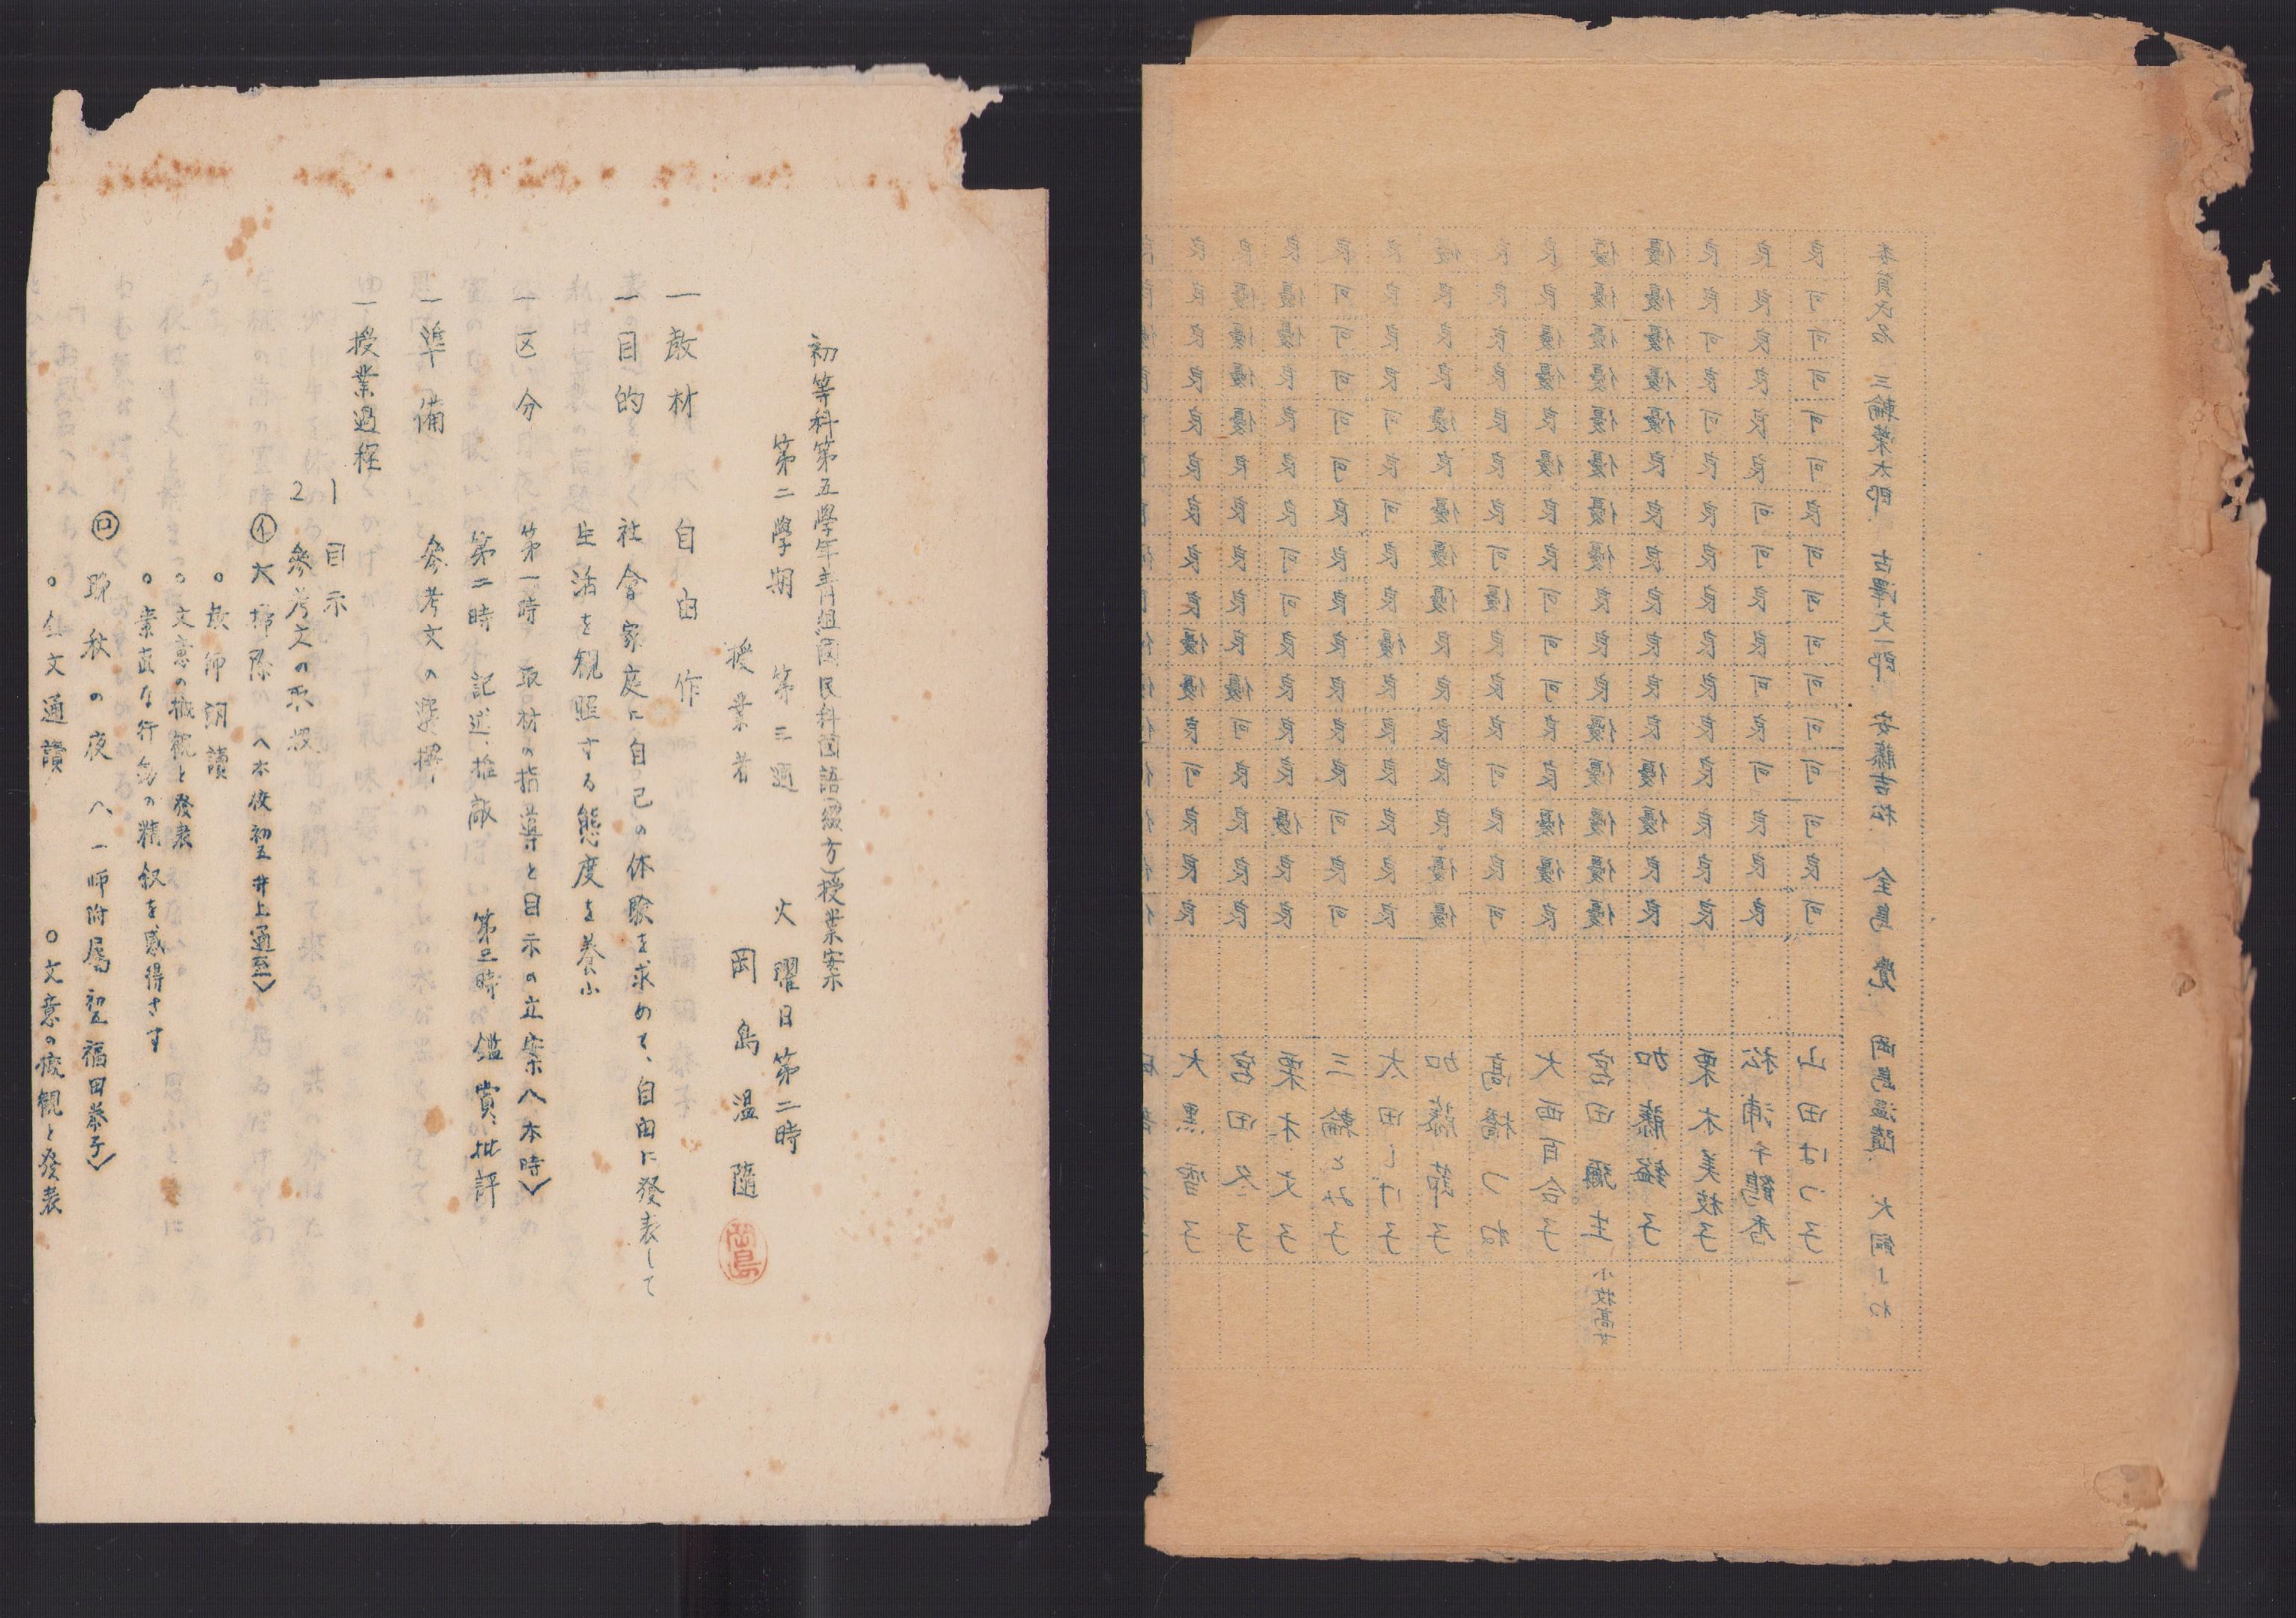 委員氏名 三輪榮太郎 古澤丈一郎 安藤吉松 全島 覺 岡島温隨 犬飼しわ
良 可 可 可 可 可 良 可 可 可 可 可 可 可 良 可 山田はつ子
良 良 良 良 良 良 可 良 良 良 可 良 可 良 良 良 松浦千鶴香
良 良 可 良 可 良 良 良 良 良 良 良 良 良 良 良 栗木美枝子
優 優 優 優 優 良 良 良 良 良 良 良 優 優 良 良 加藤 子
優 優 優 優 優 優 優 優 良 良 良 優 優 優 優 優 宮田彌生 小牧高女
良 良 優 優 良 優 良 良 可 可 可 良 良 優 優 良 大西百合子
良 良 良 良 良 良 良 可 優 良 良 良 可 良 良 可 高橋つね
優 良 良 良 優 良 優 優 優 良 良 良 良 良 優 優 加藤節子
良 良 良 良 可 良 可 良 良 優 良 良 良 良 良 良 太田しげ子
良 可 可 可 可 可 良 良 良 良 良 良 良 可 良 可 三輪とみ子
良 優 優 良 良 良 良 可 可 良 良 良 良 優 良 良 栗木文子
良 優 優 優 優 良 良 良 良 良 優 可 良 良 良 良 宮田冬子
良 良 良 良 良 良 良 良 良 優 優 良 可 良 良 良 大黒雪子
初等科第五學年青組國民科國語(綴方)授業案
第二學期 第三週 火曜日第二時
授業者 岡島温隨
岡島
一敎材 自由作
一目的 社會家庭に自己の体驗を求めて、自由に發表して
生活を観照する態度を養ふ
一区分 第一時 取材の指導と目示の立案〈本時〉
第二時 記述、推敲 第三時 鑑賞、批評
一準備 參考文の選擇
一授業過程
1 目示
2 參考文の取扱
㋑大掃除〈本校初五井上通至〉
○敎師朗讀
○文意の概観と發表
○素直な行動の精叙を感得さす
㋺ 秋の夜〈一師附属初五福田恭子〉
○全文通讀 ○文意の概観と發表